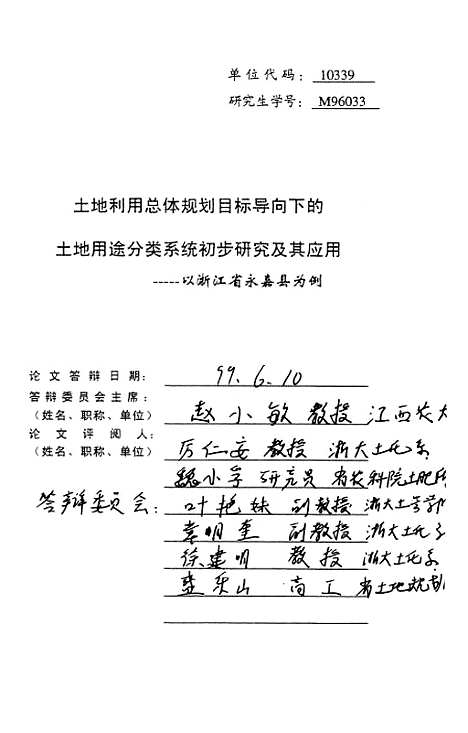 单位代码: 10339
研究生学号: M96033
土地利用总体规划目标导向下的
土地用途分类系统初步研究及其应用
-----以浙江省永嘉县为例
论文答辩日期: 99.6.10
答辩委员会主席:
(姓名、职称、单位) 赵小敏 教授 江西农大
论文评阅人:
(姓名、职称、单位) 厉仁安 教授 浙大土化系
魏小孚 研究员 省农科院土肥所
答辩委员会: 叶艳妹 副教授 浙大土管
袁明奎 副教授 浙大土化系
徐建明 教授 浙大土化系
乐山 高工 省土地规划